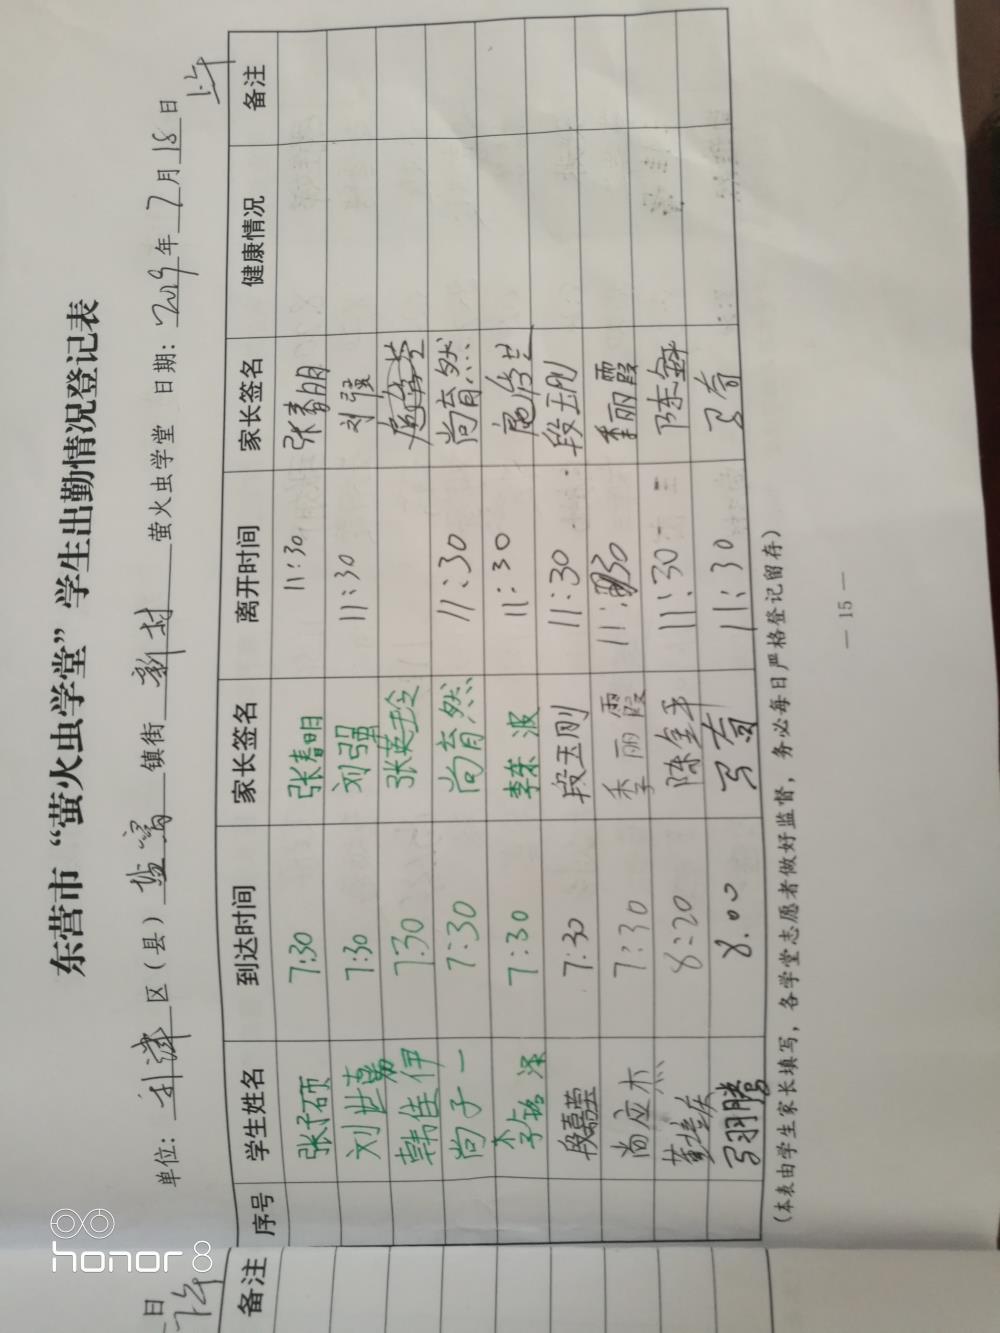 东营市“萤火虫学堂”学生出勤情况登记表
单位：利津区（县）盐窝镇街新村萤火虫学堂 日期：2019年7月18日 上午
序号 学生姓名 到达时间 家长签名 离开时间 家长签名 健康情况 备注
张子硕 7:30 张春明 11:30 张春明
刘世勇 7:30 刘强 11:30 刘强
韩佳伊 7:30 张英玲
尚子一 7:30 尚育然 11:30 尚育然
李铭泽 7:30 李东波 11:30
段嘉莹 7:30 段玉刚 11:30 段玉刚
尚应杰 7:30 季丽霞 11:30 季丽霞
8:20 陈金平 11:30
马羽腾 8.00 马奇 11:30 马奇
（本表由学生家长填写，各学堂志愿者做好监督，务必每日严格登记留存）
— 15 —
日
下午
备注
honor 8